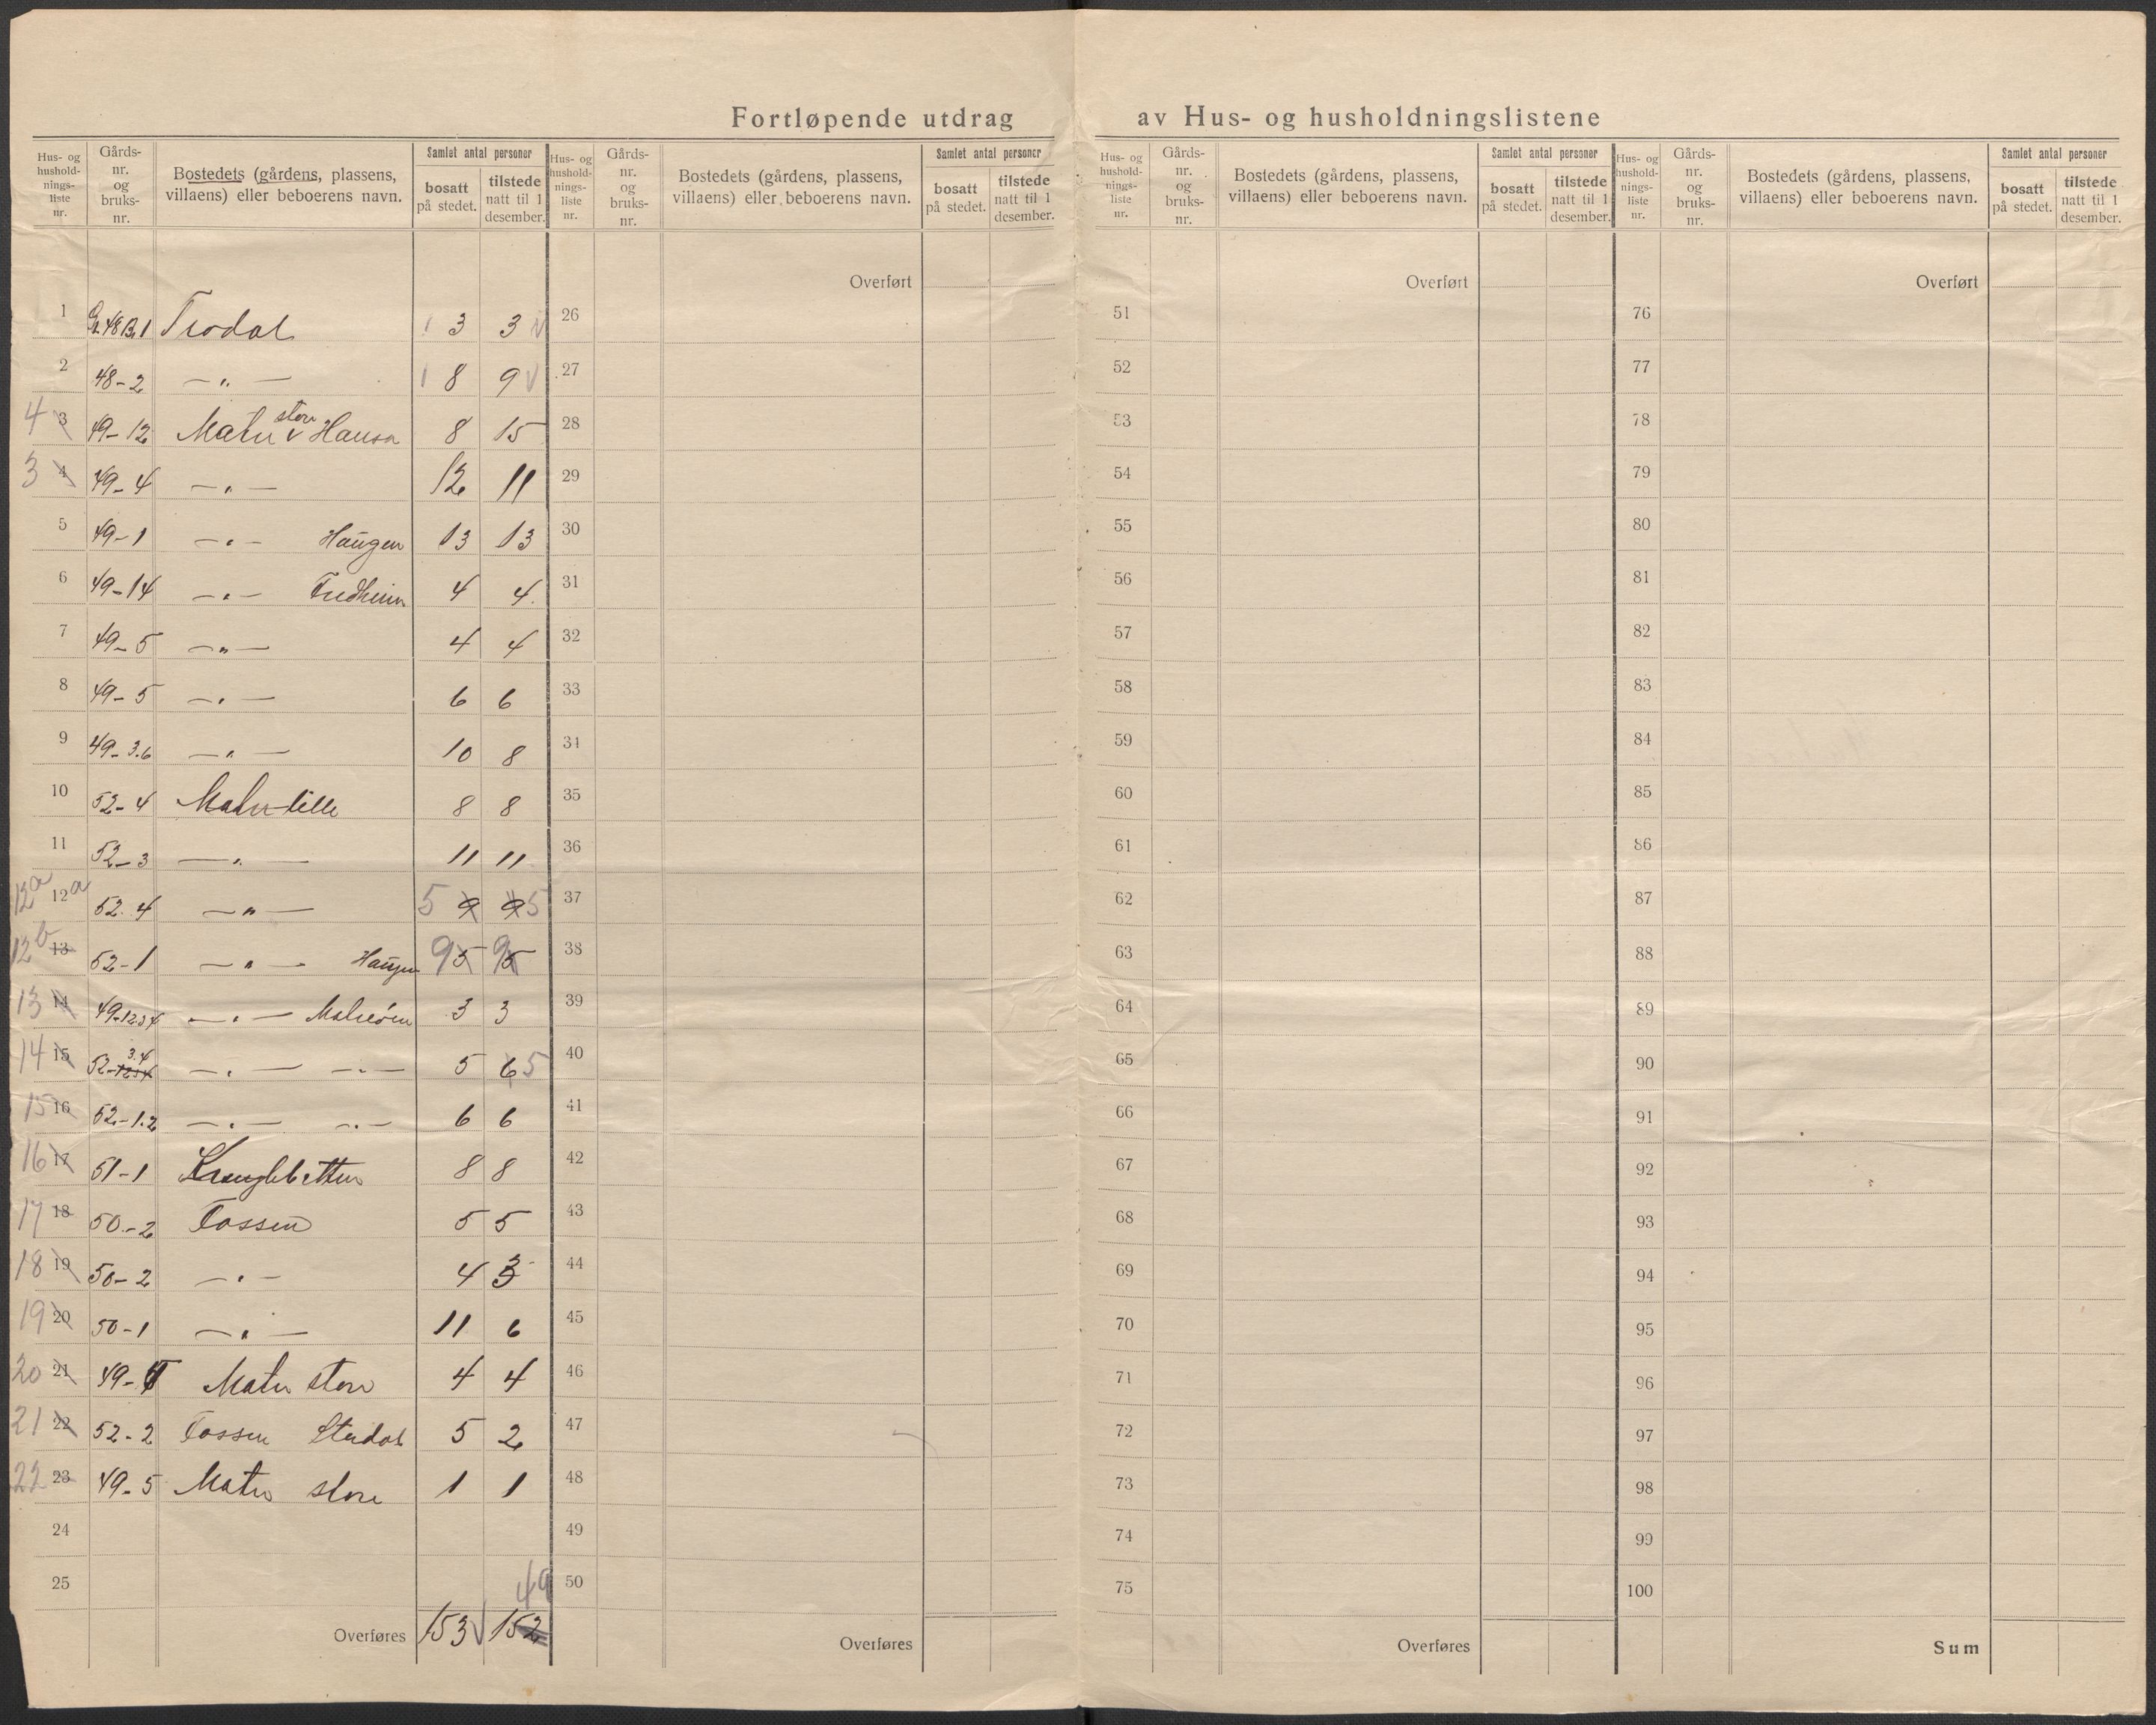 Fortløpende utdrag av Hus- og husholdningslistene
Hus- og hushold-nings-liste nr. Gårds-nr. og bruks-nr. Bostedets (gårdens, plassens, villaens) eller beboerens navn. Samlet antal personer bosatt på stedet. tilstede natt til 1 desember.
Hus- og hushold-nings-liste nr. Gårds-nr. og bruks-nr. Bostedets (gårdens, plassens, villaens) eller beboerens navn. Samlet antal personer bosatt på stedet. tilstede natt til 1 desember.
Hus- og hushold-nings-liste nr. Gårds-nr. og bruks-nr. Bostedets (gårdens, plassens, villaens) eller beboerens navn. Samlet antal personer bosatt på stedet. tilstede natt til 1 desember.
Hus- og hushold-nings-liste nr. Gårds-nr. og bruks-nr. Bostedets (gårdens, plassens, villaens) eller beboerens navn. Samlet antal personer bosatt på stedet. tilstede natt til 1 desember.
Overført Overført Overført
1 G. 48 B. 1 Trodal 3 3 26 51 76
2 48-2 —"— 8 9 27 52 77
4 3 49-12 Matre store 8 15 28 53 78
3 4 49-4 —"— 12 11 29 54 79
5 49-1 —"— Haugen 13 13 30 55 80
6 49-14 —"— Fredheim 4 4 31 56 81
7 49-5 —"— 4 4 32 57 82
8 49-5 —"— 6 6 33 58 83
9 49-3.6 —"— 10 8 34 59 84
10 52-4 Matre lille 8 8 35 60 85
11 52-3 —"— 11 11 36 61 86
12a 12a 52.4 —"— 5 9 9 5 37 62 87
12b 13 52-1 —"— Haugen 9 5 9 5 38 63 88
13 14 49-1234 —"— 3 3 39 64 89
14 15 52-1234 3.4 —"— —"— 5 6 5 40 65 90
15 16 52-1.2 —"— —"— 6 6 41 66 91
16 17 51-1 8 8 42 67 92
17 18 50-2 Fossen 5 5 43 68 93
18 19 50-2 —"— 4 3 44 69 94
19 20 50-1 —"— 11 6 45 70 95
20 21 49- Matre store 4 4 46 71 96
21 22 52-2 Fossen 5 2 47 72 97
22 23 49-5 Matre store 1 1 48 73 98
24 49 74 99
25 50 75 100
49
Overføres 153 152 Overføres Overføres Sum